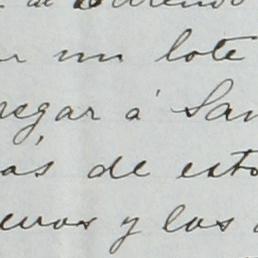 un lote
regar á San
ás de esto
uevos y los